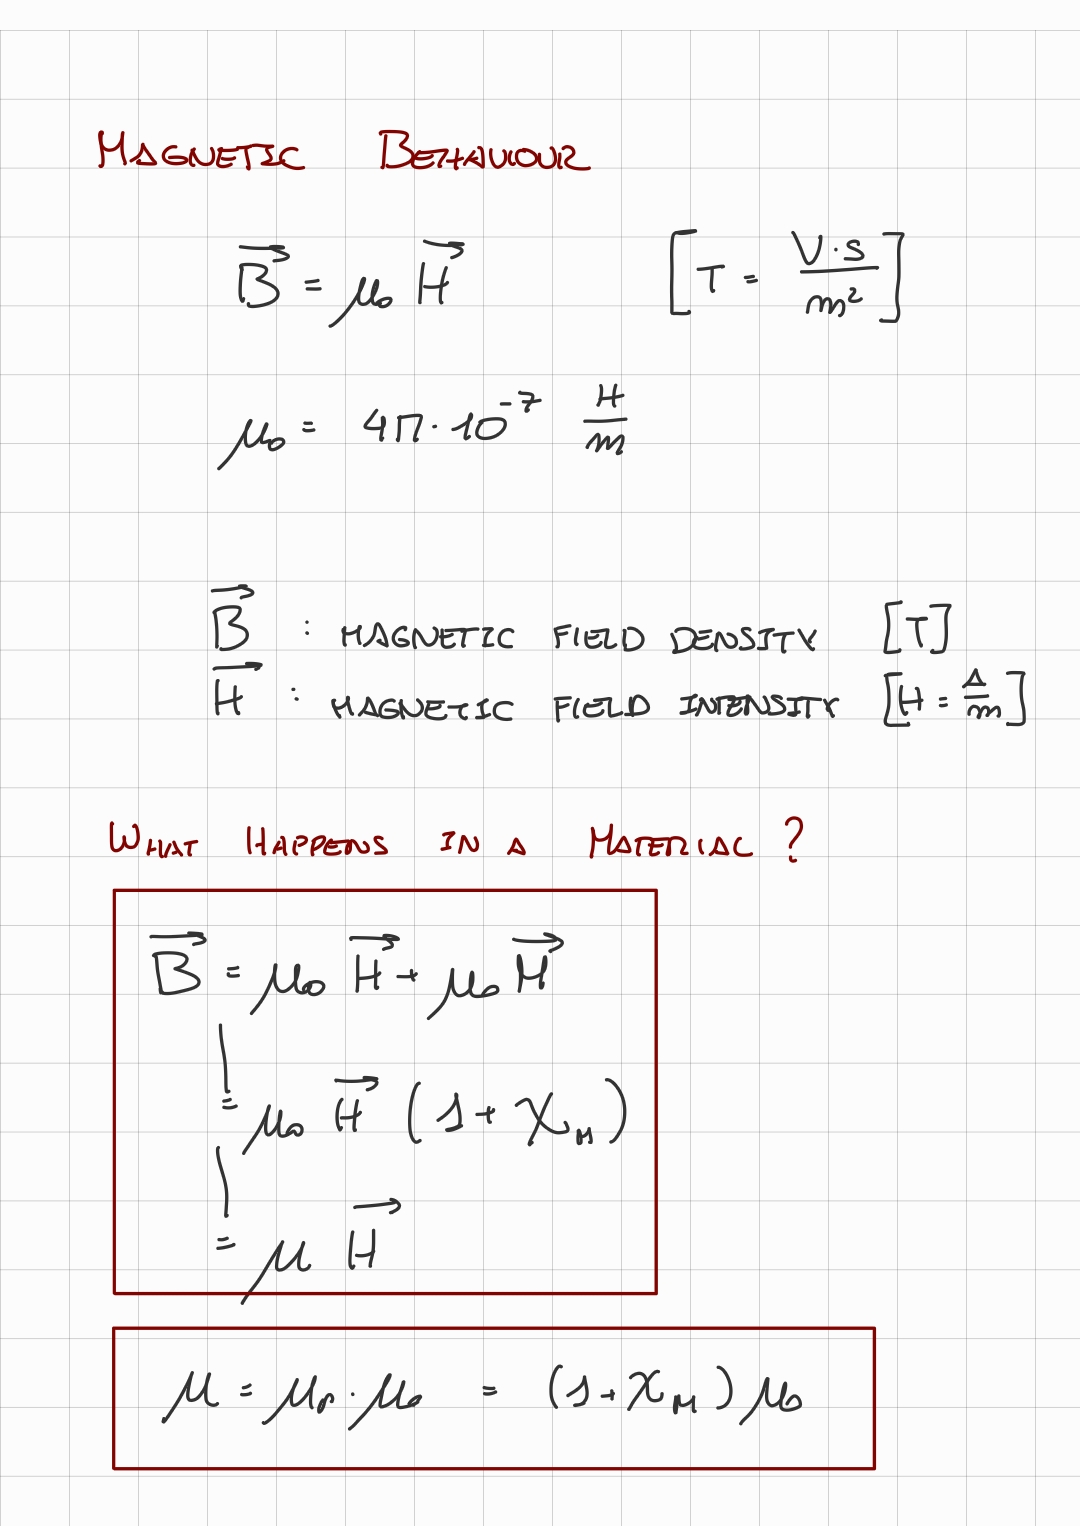 MAGNETIC BEHAVIOUR
B⃗ = μ₀ H⃗ [T = V·s/m²]
μ₀ = 4π·10⁻⁷ H/m
B⃗ : MAGNETIC FIELD DENSITY [T]
H⃗ : MAGNETIC FIELD INTENSITY [H = A/m]
WHAT HAPPENS IN A MATERIAL ?
B⃗ = μ₀ H⃗ + μ₀ M⃗
= μ₀ H⃗ (1 + χ_M)
= μ H⃗
μ = μᵣ·μ₀ = (1 + χ_M) μ₀